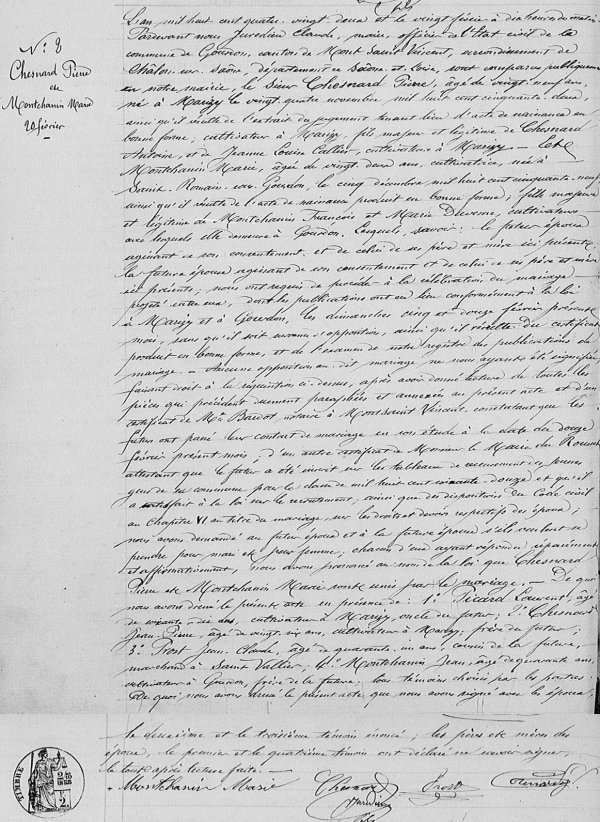 N.° 8
Chesnard Pierre
et
Montchanin Marie
20 février
L'an mil huit cent quatre-vingt-deux et le vingt février à dix heures du matin
Pardevant nous Claude, maire, officier de l'État civil de la
commune de Gourdon, canton de Mont Saint Vincent, arrondissement de
Châlon-sur-Saône, département de Saône et Loire, sont comparus publiquement
en notre mairie, le sieur Chesnard Pierre, âgé de vingt-neuf ans,
né à Marigny le vingt-quatre novembre mil huit cent cinquante-deux,
ainsi qu'il résulte de l'extrait du jugement tenant lieu d'acte de naissance en
bonne forme; cultivateur à Marigny, fils majeur et légitime de Chesnard
Antoine, et de Jeanne Louise, cultivateurs à Marigny — Et
Montchanin Marie, âgée de vingt-deux ans, cultivatrice, née à
Saint-Romain-sous-Gourdon, le cinq décembre mil huit cent cinquante-neuf
ainsi qu'il résulte de l'acte de naissance produit en bonne forme, fille majeure
et légitime de Montchanin François et Marie, cultivateurs
avec lesquels elle demeure à Gourdon. Lesquels, savoir: le futur époux
agissant de son consentement, et de celui de ses père et mère ici présents,
la future épouse agissant de son consentement et de celui de ses père et mère
ici présents; nous ont requis de procéder à la célébration du mariage
projeté entre eux, dont les publications ont eu lieu conformément à la loi
à Marigny et à Gourdon, les dimanches cinq et douze février présent
mois, sans qu'il soit survenu d'opposition, ainsi qu'il résulte du certificat
produit en bonne forme, et de l'examen de notre registre des publications de
mariage. — Aucune opposition au dit mariage ne nous ayant été signifiée
faisant droit à la réquisition ci-dessus, après avoir donné lecture de toutes les
pièces qui précèdent dûment paraphées et annexées au présent acte et d'un
certificat de M.e Bardot notaire à Mont Saint Vincent, constatant que les
futurs ont passé leur contrat de mariage en son étude à la date du douze
février présent mois; d'un autre certificat de Monsieur le Maire du
attestant que le futur a été inscrit sur les tableaux de recensement des jeunes
gens de sa commune, pour la classe de mil huit cent soixante-douze et qu'il
a satisfait à la loi sur le recrutement; ainsi que des dispositions du Code civil
au Chapitre VI au titre du mariage, sur les droits et devoirs respectifs des époux;
nous avons demandé au futur époux et à la future épouse s'ils veulent se
prendre pour mari et pour femme; chacun d'eux ayant répondu séparément
et affirmativement, nous avons prononcé au nom de la loi que Chesnard
Pierre et Montchanin Marie sont unis par le mariage. — De quoi
nous avons dressé le présent acte en présence de: 1.° Picard Laurent, âgé
de ans, cultivateur à Marigny, oncle du futur; 2.° Chesnard
Jean-Pierre, âgé de vingt-six ans, cultivateur à Marigny, frère du futur;
3.° Prost Jean-Claude, âgé de quarante-un ans, cousin de la future,
marchand à Saint Vallier; 4.° Montchanin Jean, âgé de quarante ans,
cultivateur à Gourdon, frère de la future. tous témoins choisis par les parties.
De quoi nous avons dressé le présent acte que nous avons signé avec la épouse,
le deuxième et le troisième témoin énoncés; les pères et mères des
époux, le premier et le quatrième témoin ont déclaré ne savoir signer,
le tout après lecture faite. —
Montchanin Marie
Chesnard
Prost
TIMBRE